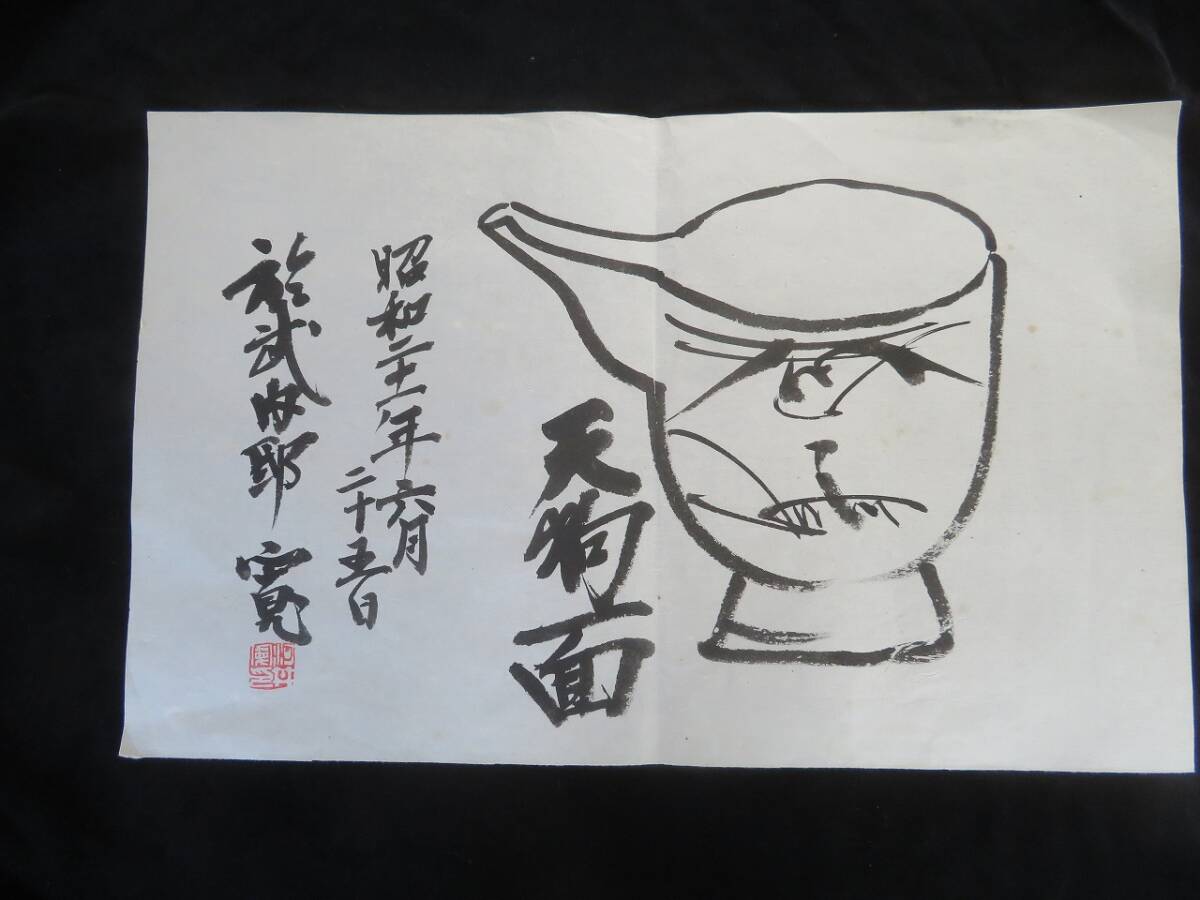 天狗面
昭和二十一年六月
二十五日
於武内邸 寛